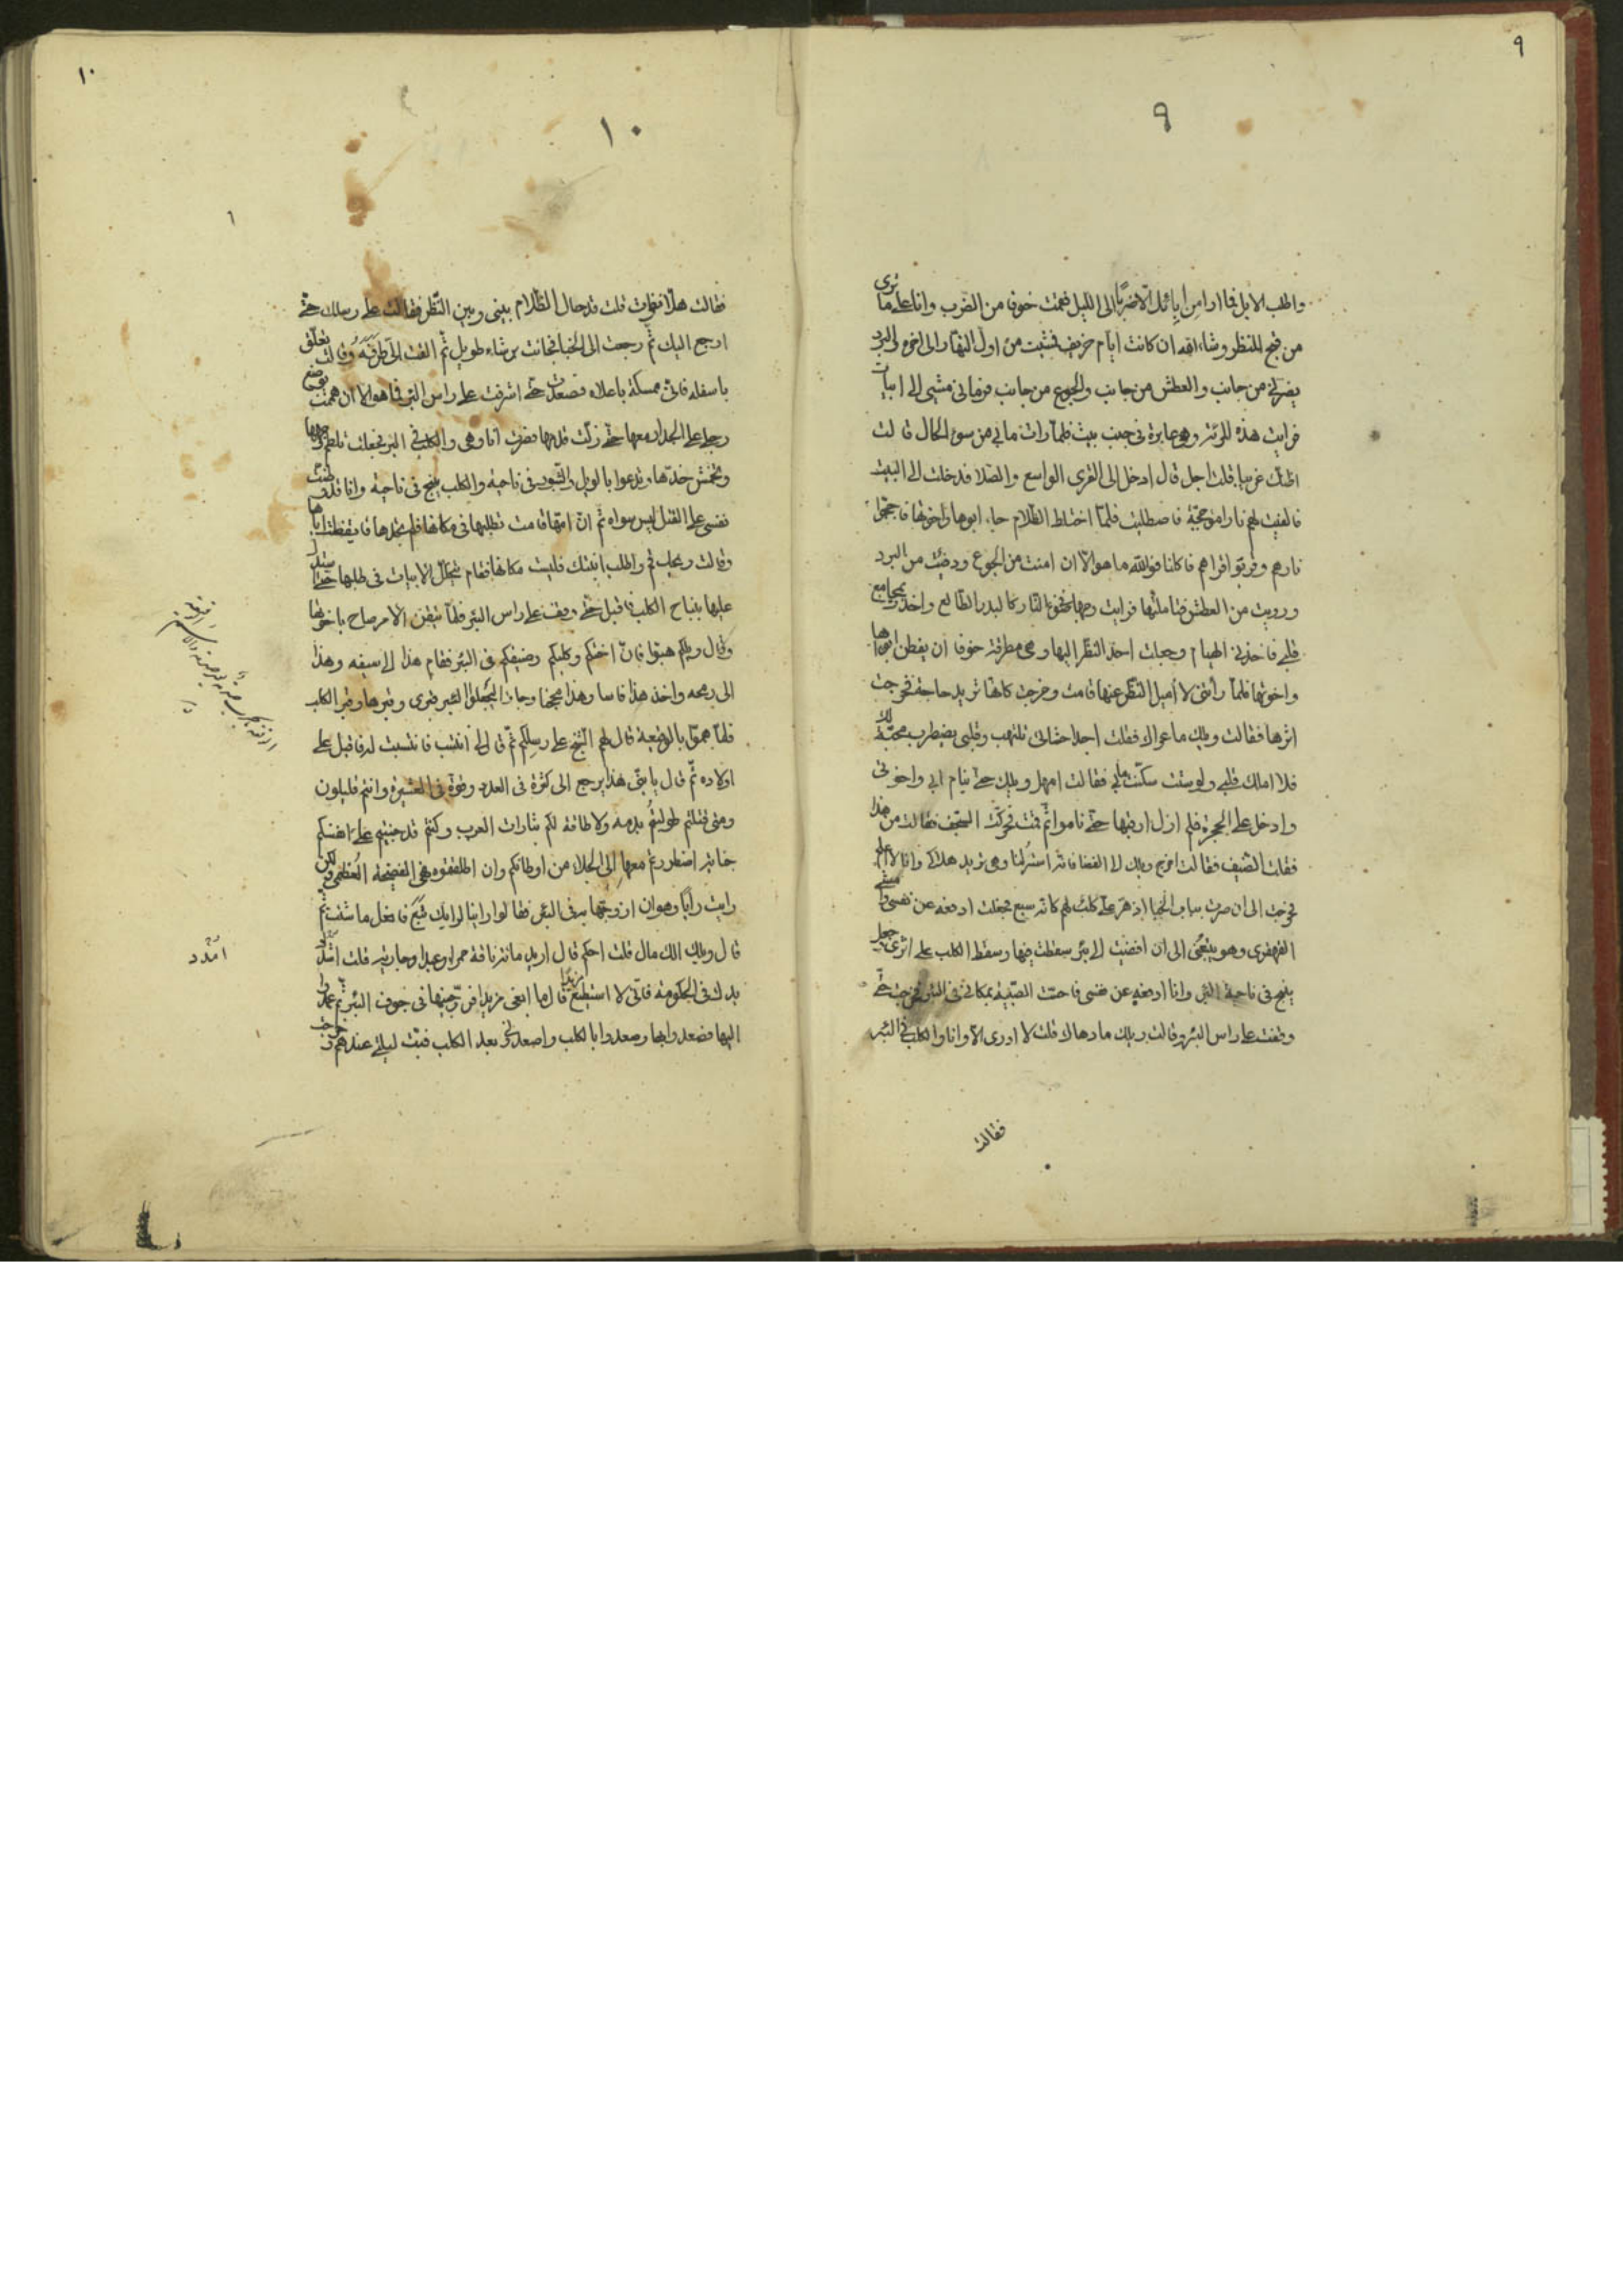 ٩
٩
واطلب الابل فما ارا من ابائل الا ضربًا الى الليل فهمت خوفا من الضرب وانا على ما ترى
من قبح المنظر وشاء الله ان كانت ايام خريف فشبت من اول النهار الى اخره والبرد
يضربني من جانب والعطش من جانب والجوع من جانب فرماني مشيي الى ابيات
فرايت هذه المرئة وهي عابرة في جنب بيت فلما رات ما بي من سوء الحال قالت
اظنك غريبا فقلت اجل قال ادخل الى القرى الواسع والصلا فدخلت الى البيت
فالفيت لهم نارا مؤججة فاصطليت فلما اختلط الظلام جاء ابوها واخوتها فاججوا
نارهم وقربوا قراهم فاكلنا فوالله ما هو الا ان امنت من الجوع ودفيت من البرد
ورويت من العطش فتاملتها فرايت وجهها بضوء النار كالبدر الطالع واخذت بمجامع
قلبي فاخذني الهيام وجعلت احد النظر اليها وهي مطرقة خوفا ان يفطن ابوها
واخوتها فلما رأتني لا أميل النظر عنها قامت وخرجت كانها تريد حاجة فخرجت
اثرها فقالت ويلك ما عوالك فقلت اجلا حشائي تلتهب وقلبي يضطرب محبة لك
فلا املك قلبي ولو ستت سكنت ما بي فقالت امهل ويلك حتى ينام ابي واخوتي
وادخل على الحجرة فلم ازل ارقبها حتى ناموا ثم قمت فحركت السجف فقالت من هذا
فقلت الضيف فقالت اخرج ويلك لا الفضا فانه استر لنا وهي تريد هلاكي وانا لا اعلم
فخرجت الى ان صرت بباب الخبا اذ هر علي كلب لهم كانه سبع فجعلت ادفعه عن نفسي وامشي
القهقرى وهو يتبعني الى ان افضيت الى بئر سقطت فيها وسقط الكلب على اثري وجعل
ينبح في ناحية البئر وانا ادفعه عن نفسي فاحست الصبية بمكاني في البئر فخرجت حتى
وقفت على راس البئر وقالت ويلك ما دهاك قلت لا ادرى الا وانا والكلب في البئر
فقالت
١٠
١٠
فقالت هلا تغوات قلت قد حال الظلام بيني وبين النظر فقالت على رسلك حتى
ارجع اليك ثم رجعت الى الخبا فجائت برشاء طويل ثم القت الى طرفه وقالت تعلق
باسفله فانى ممسكة باعلاه فصعدت حتى اشرفت على راس البئر فما هو الا ان هممت بوضع
رجلي على الجدار معها حتى زلت قدمها فصرت انا وهي والكلب في البئر فجعلت تلطم وجهها
وتخمش خدها وتدعوا بالويل والثبور في ناحية والكلب ينبح في ناحية وانا قد وطنت
نفسي على القتل ليس سواه ثم ان امها قامت تطلبها في مكانها فلم تجدها فايقظت اباها
وقالت ويحك قم واطلب ابنتك فليست مكانها فقام يتخلل الابيات في طلبها حتى ستدل
عليها بنباح الكلب فاقبل حتى وقف على راس البئر فلما تيقن الامر صاح باخوتها
وقال ويلكم هبوا فان اختكم وكلبكم وضيفكم في البئر فقام هذا الى سيفه وهذا
الى رمحه واخذ هذا فاسا وهذا محجنا وجاؤا ليجعلوا البئر قبرى وقبرها وقبر الكلب
فلما هموا بالوقيعة قال لهم الشيخ على رسلكم ثم قال لي انتسب فانتسبت له فاقبل على
اولاده ثم قال يا بني هذا يرجع الى كثرة في العدد وقوة في العشيرة وانتم قليلون
ومتى قتلتم طولبتم بدمه ولا طاقة لكم بثارات العرب وكنتم قد جنيتم على انفسكم
جناية اضطررتم معها الى الجلاء من اوطانكم وان اطلقتوه فهي الفضيحة العظمى ولكن
رايت رأيًا وهو ان ازوجها به في البئر فقالوا راينا لرايك تبع فافعل ما شئت ثم
قال ويلك الك مال قلت احكم قال اريد مائة ناقة حمرا وعبدا وجارية قلت اشدد
يدك في الحكومة فانى لا استطيع مزيدا قال ما ابغى مزيدا فزوجنيها في جوف البئر ثم عمدوا
اليها فصعدوا بها وصعدوا بالكلب واصعدنى بعد الكلب فبت ليلتي عندهم وخرجت
امدد